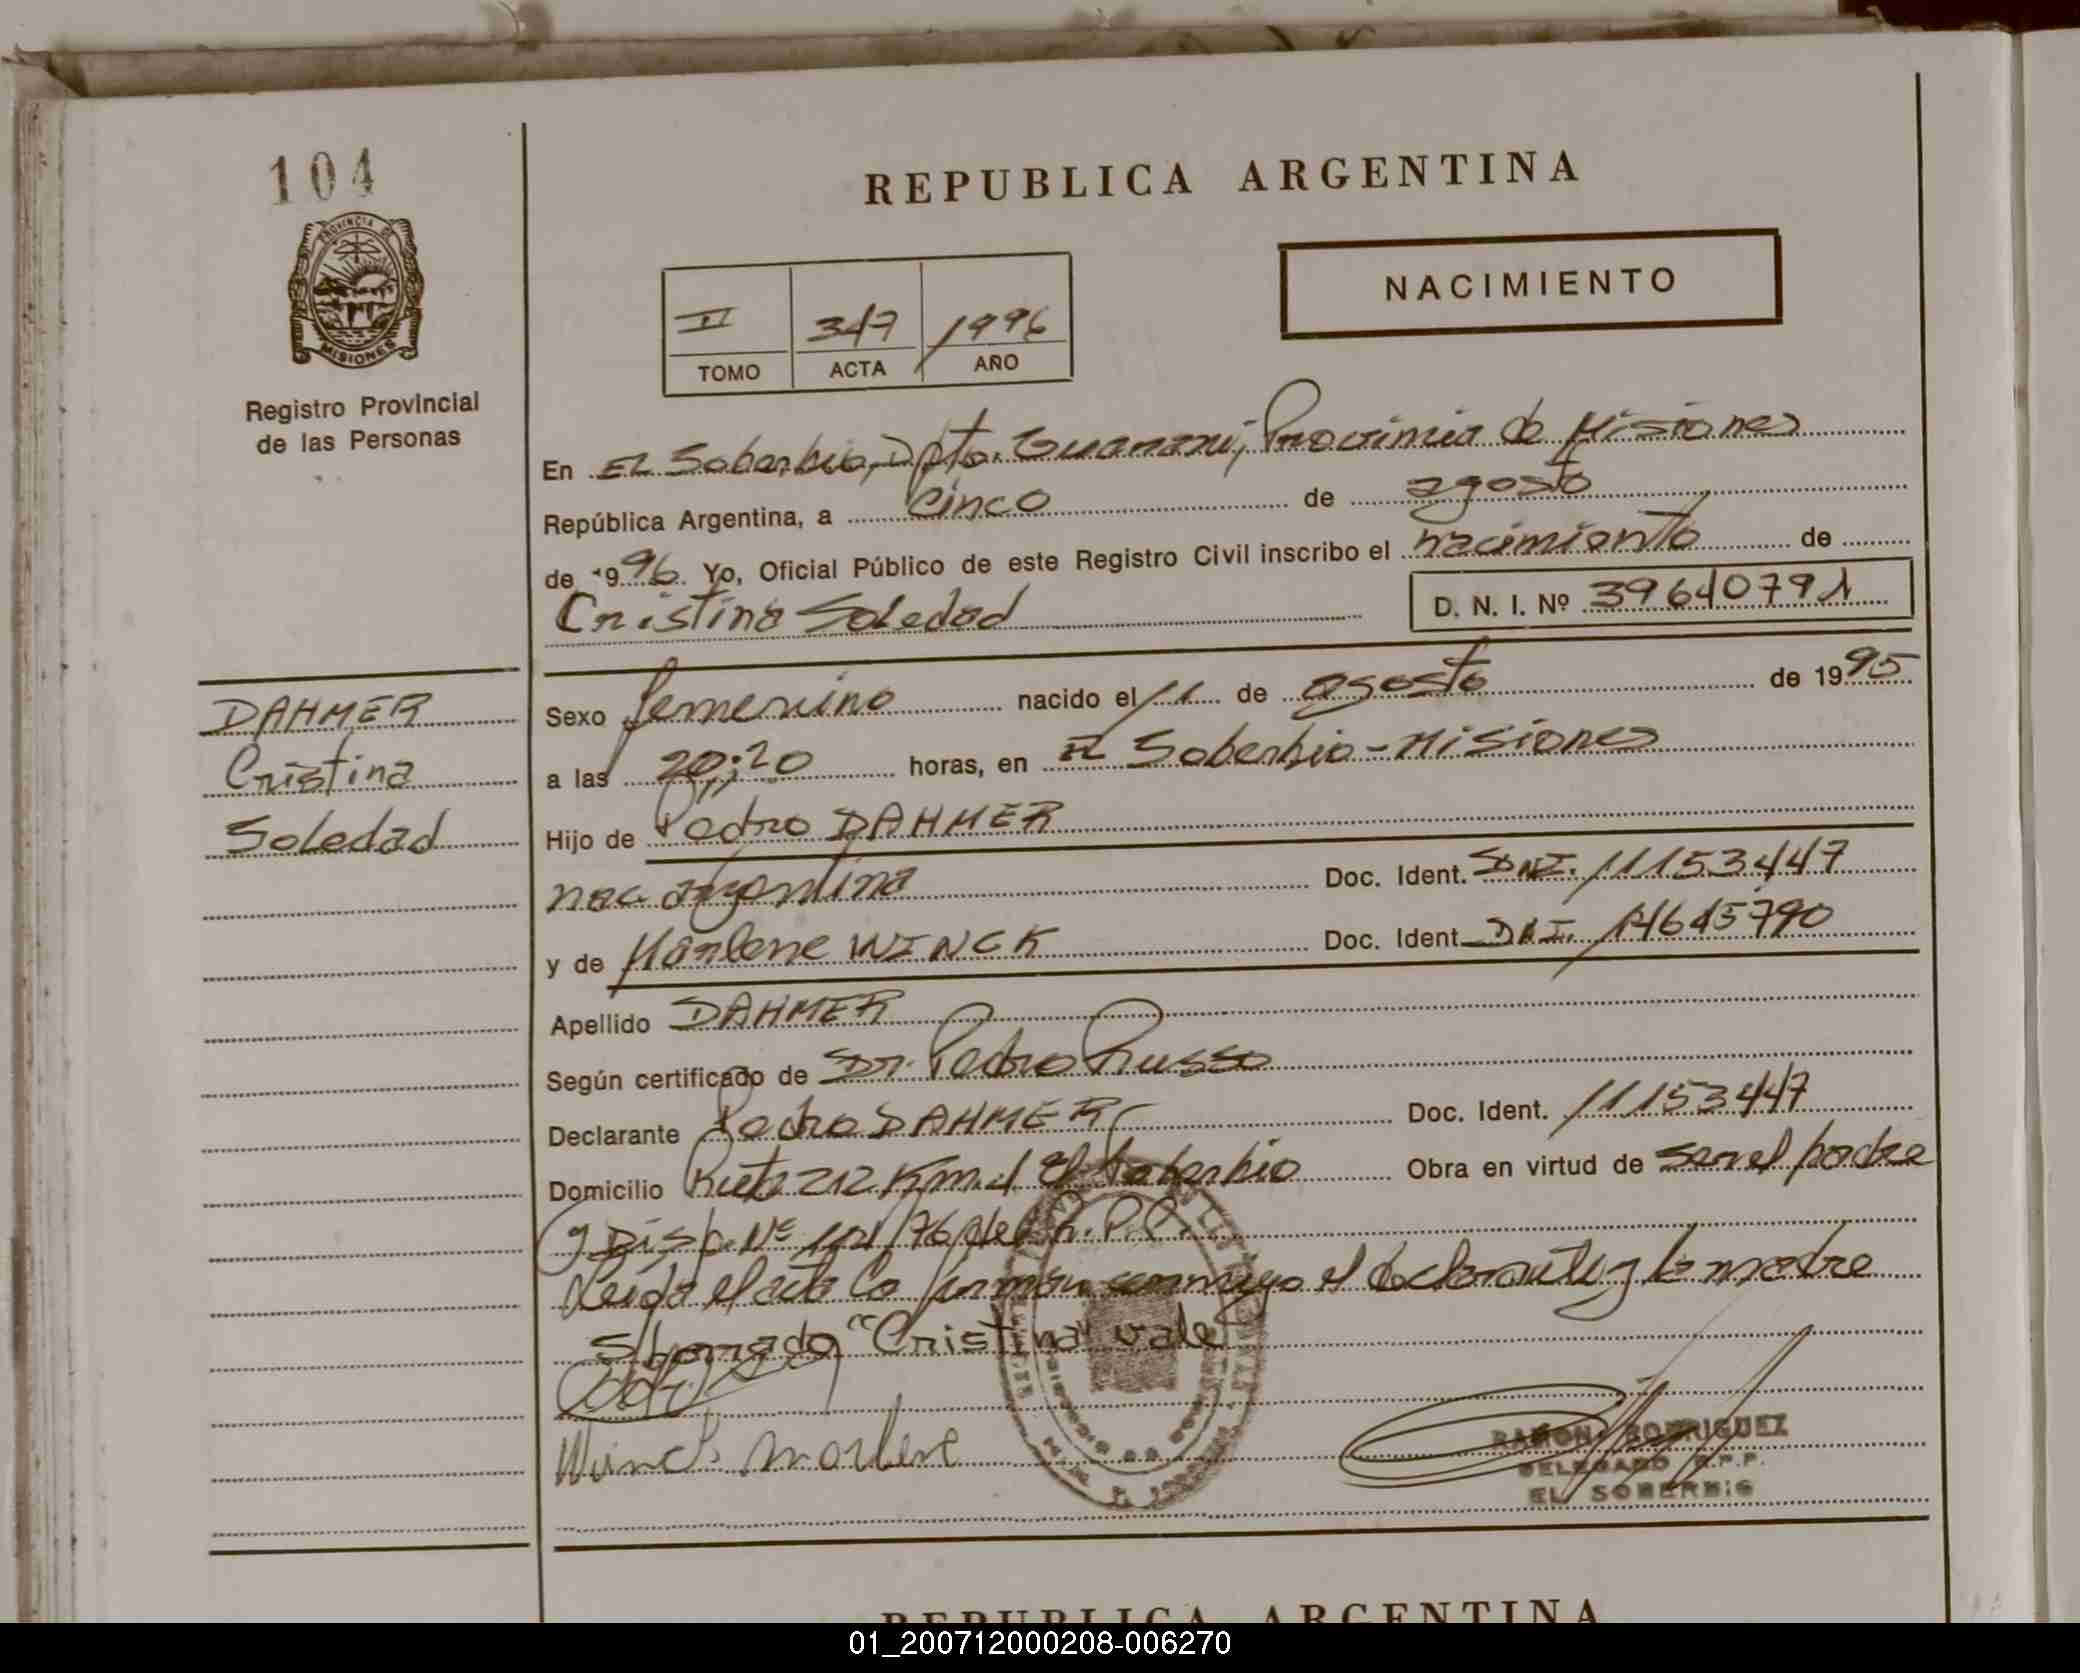 104
PROVINCIA DE
MISIONES
Registro Provincial
de las Personas
REPUBLICA ARGENTINA
NACIMIENTO
II 347 1996
TOMO ACTA AÑO
En El Soberbio, Dpto. Guaraní, Provincia de Misiones
República Argentina, a cinco de agosto
de 1996. Yo, Oficial Público de este Registro Civil inscribo el nacimiento de
Cristina Soledad D. N. I. Nº 39640791
DAHMER
Cristina
Soledad
Sexo femenino nacido el 11 de agosto de 1995
a las 20:20 horas, en El Soberbio - Misiones
Hijo de Pedro DAHMER
nac. argentina Doc. Ident. DNI. 11153447
y de Marlene WINCK Doc. Ident. DNI. 14645790
Apellido DAHMER
Según certificado de Dr. Pedro Russo
Declarante Pedro DAHMER Doc. Ident. 11153447
Domicilio Ruta 212 Km. 1 El Soberbio Obra en virtud de ser el padre
y Disp. Nº /76 del R.P.P.
Leida el acta la firman conmigo el declarante y la madre
S/borrado "Cristina" vale
Winck Marlene
RAMON RODRIGUEZ
DELEGADO R.P.P.
EL SOBERBIO
REPUBLICA ARGENTINA
01_200712000208-006270